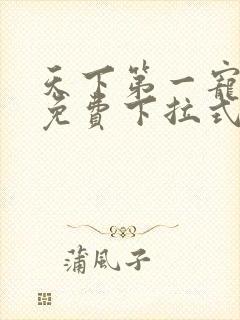 天下第一寵
免費下拉式
蒲風子